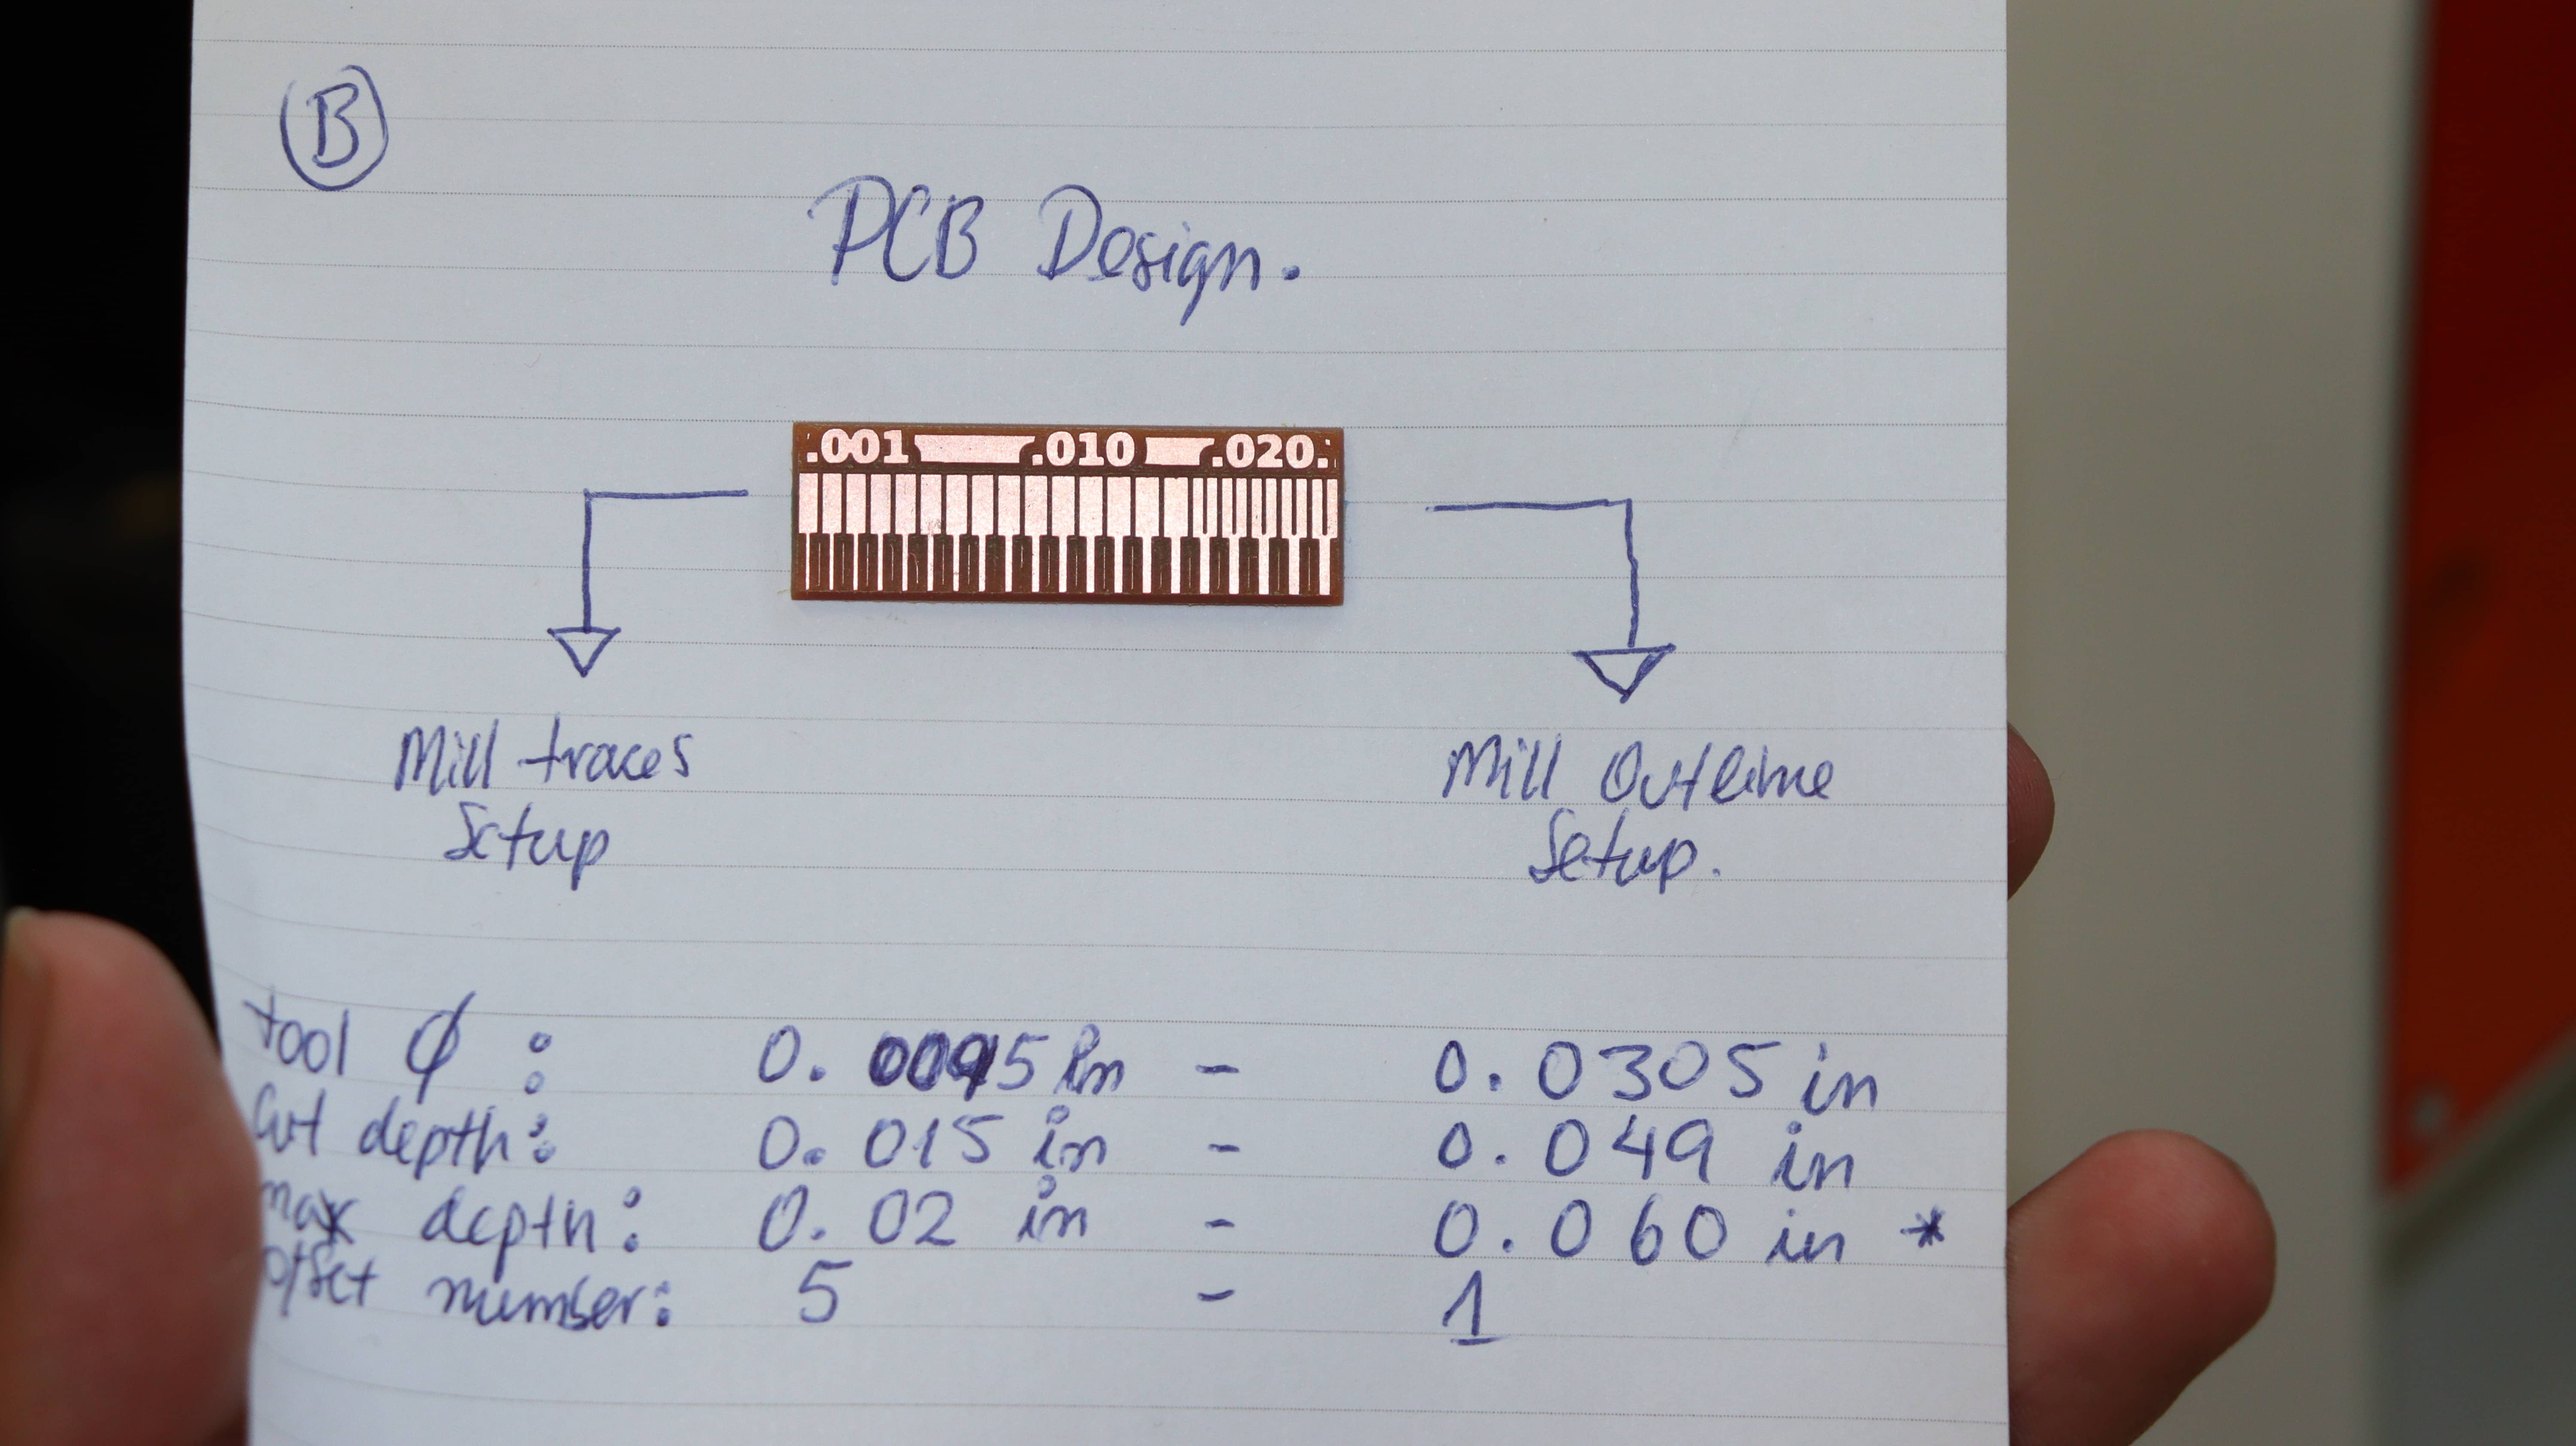 B
PCB Design.
.001 .010 .020.
Mill traces
Setup
Mill Outline
Setup.
tool ϕ : 0.0095 in - 0.0305 in
Cut depth: 0.015 in - 0.049 in
max depth: 0.02 in - 0.060 in *
offset number: 5 - 1